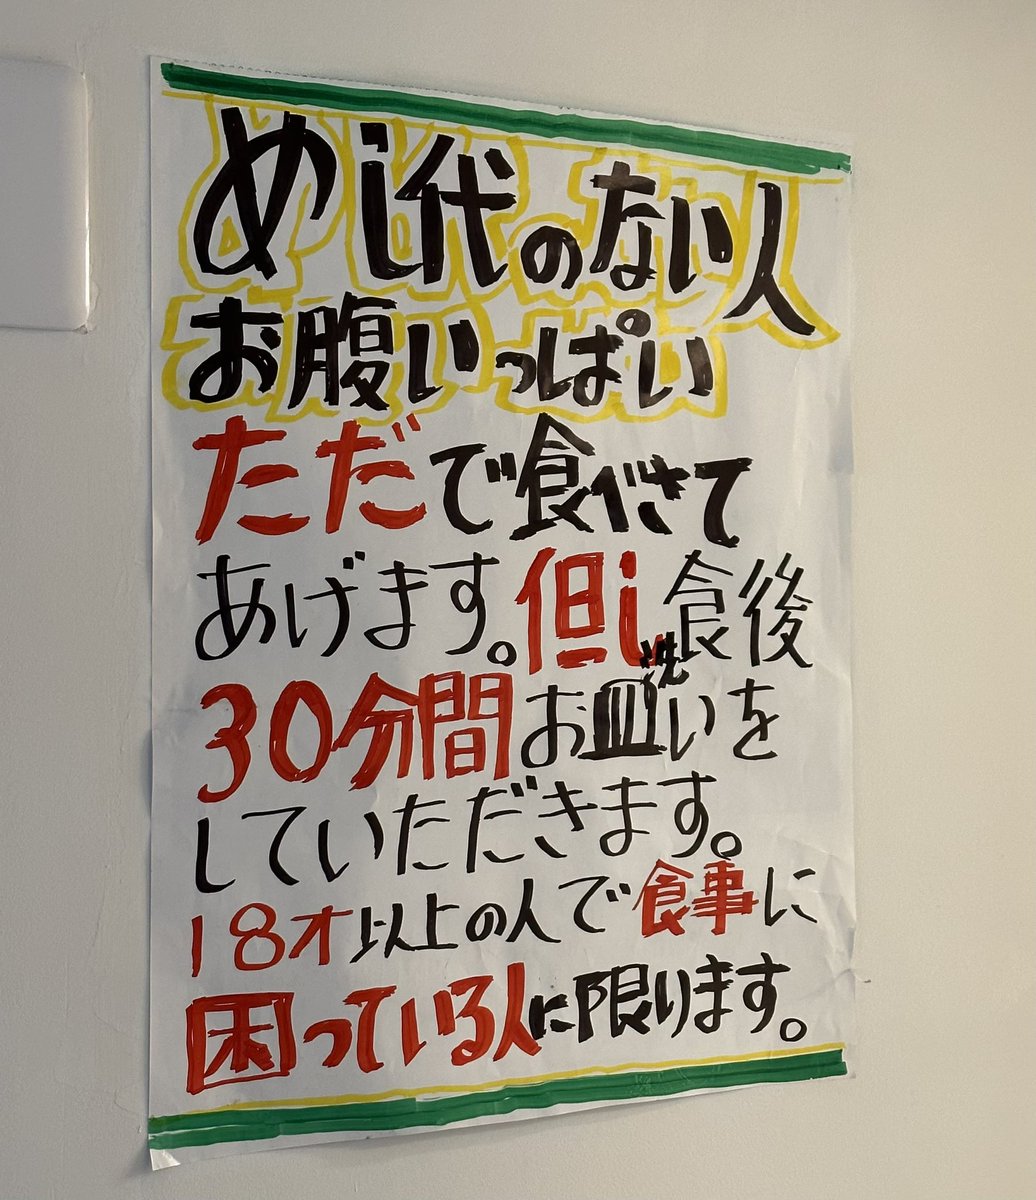 めし代のない人
お腹いっぱい
ただで食べさて
あげます。但し食後
30分間お皿洗いを
していただきます。
18才以上の人で食事に
困っている人に限ります。